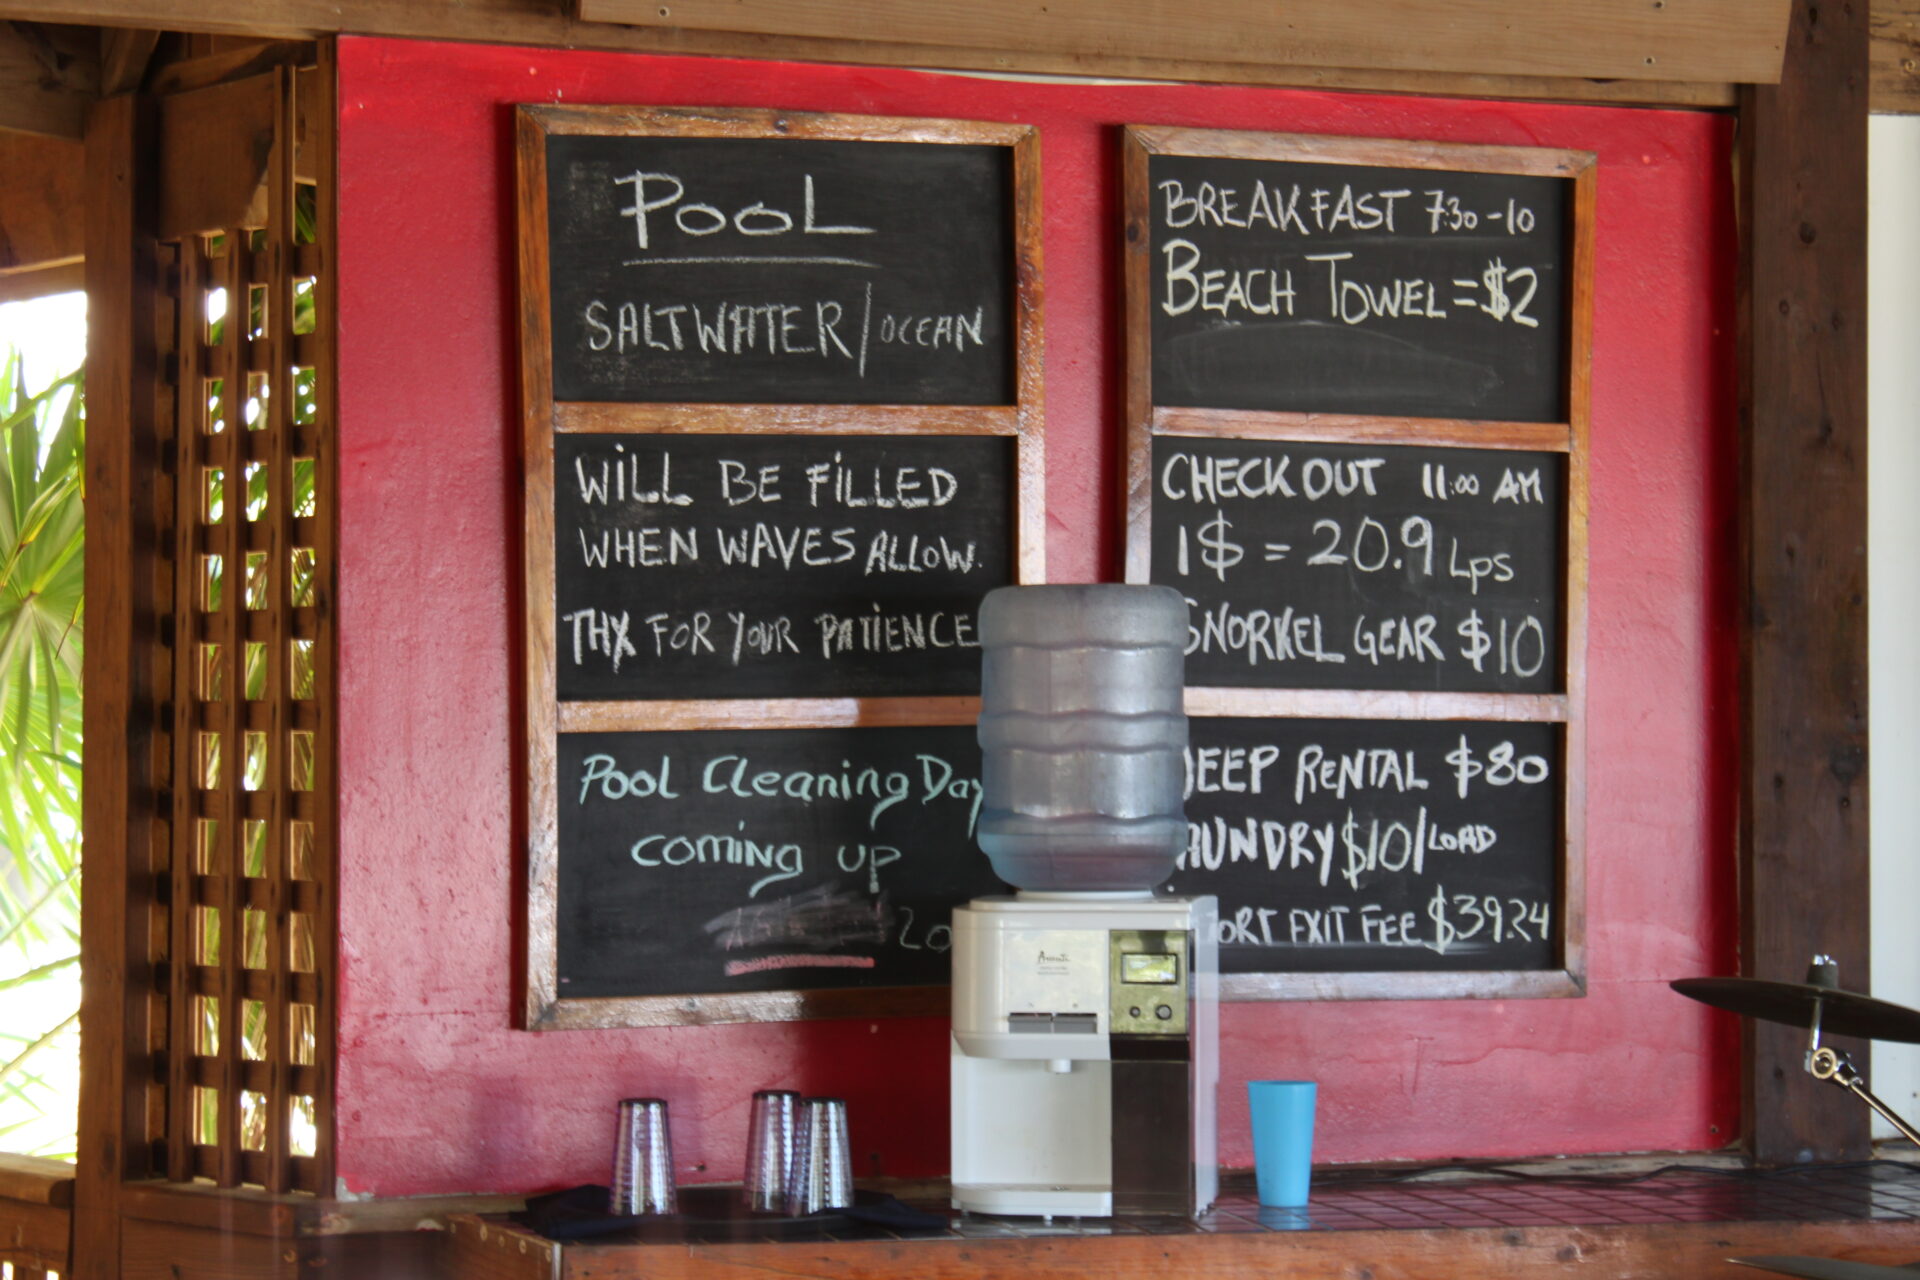 POOL
SALTWATER/OCEAN
WiLL BE FiLLED
WHEN WAVES ALLOW.
THX FOR YOUR PATIENCE
Pool Cleaning Day
coming up
20
BREAKFAST 7:30-10
BEACH TOWEL=$2
CHECK OUT 11:00 AM
1$ = 20.9 Lps
SNORKEL GEAR $10
JEEP RENTAL $80
AUNDRY $10/LOAD
ORT EXIT FEE $39.24
Avanti